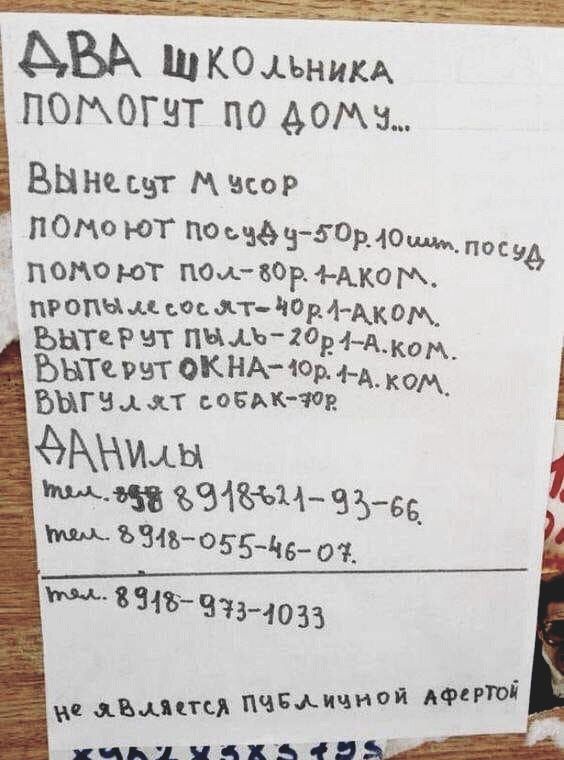 ДВА ШКОЛЬНИКА
ПОМОГУТ ПО ДОМУ...
ВЫНЕСУТ МУСОР
ПОМОЮТ ПОСУДУ-50р.10шт.ПОСУД
ПОМОЮТ ПОЛ-80р.1-АКОМ.
ПРОПЫЛЕСОСЯТ-40р.1-АКОМ.
ВЫТЕРУТ ПЫЛЬ-20р.1-А.КОМ.
ВЫТЕРУТ ОКНА-10р.1-А.КОМ.
ВЫГУЛЯТ СОБАК-70р.
ДАНИЛЫ
тел. 8918-621-93-66.
тел. 8918-055-46-07.
тел. 8918-973-1033
не ЯВЛЯЕТСЯ ПУБЛИЧНОЙ АФЕРТОЙ